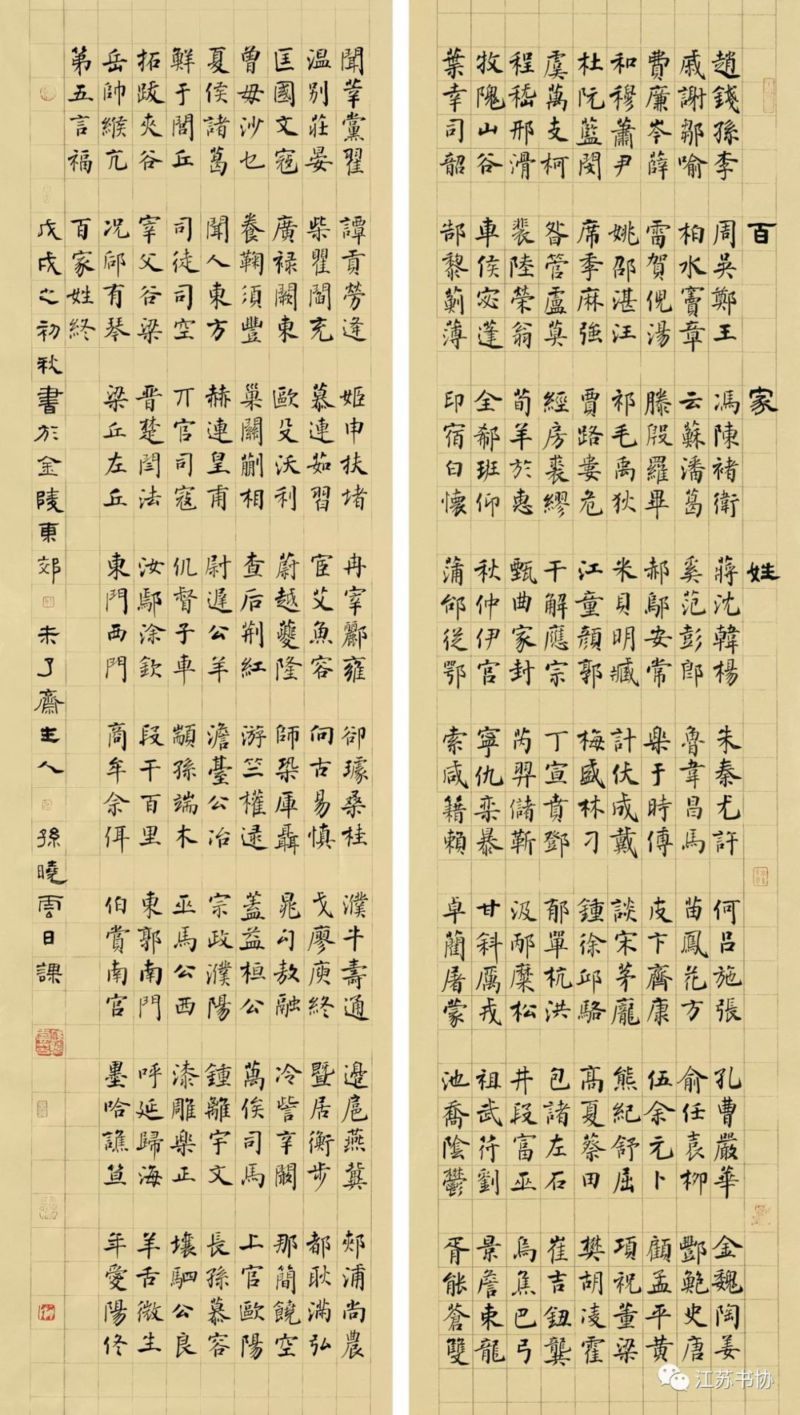 百家姓
趙錢孫李 周吳鄭王 馮陳褚衛 蔣沈韓楊 朱秦尤許 何呂施張 孔曹嚴華 金魏陶姜
戚謝鄒喻 柏水竇章 云蘇潘葛 奚范彭郎 魯韋昌馬 苗鳳花方 俞任袁柳 酆鮑史唐
費廉岑薛 雷賀倪湯 滕殷羅畢 郝鄔安常 樂于時傅 皮卞齊康 伍余元卜 顧孟平黃
和穆蕭尹 姚邵湛汪 祁毛禹狄 米貝明臧 計伏成戴 談宋茅龐 熊紀舒屈 項祝董梁
杜阮藍閔 席季麻強 賈路婁危 江童顏郭 梅盛林刁 鍾徐邱駱 高夏蔡田 樊胡凌霍
虞萬支柯 昝管盧莫 經房裘繆 干解應宗 丁宣賁鄧 郁單杭洪 包諸左石 崔吉鈕龔
程嵇邢滑 裴陸榮翁 荀羊於惠 甄曲家封 芮羿儲靳 汲邴糜松 井段富巫 烏焦巴弓
牧隗山谷 車侯宓蓬 全郗班仰 秋仲伊宮 寧仇欒暴 甘斜厲戎 祖武符劉 景詹束龍
葉幸司韶 郜黎薊薄 印宿白懷 蒲邰從鄂 索咸籍賴 卓藺屠蒙 池喬陰鬱 胥能蒼雙
聞莘黨翟 譚貢勞逄 姬申扶堵 冉宰酈雍 卻璩桑桂 濮牛壽通 邊扈燕冀 郟浦尚農
溫別莊晏 柴瞿閻充 慕連茹習 宦艾魚容 向古易慎 戈廖庾終 暨居衡步 都耿滿弘
匡國文寇 廣祿闕東 歐殳沃利 蔚越夔隆 師鞏厙聶 晁勾敖融 冷訾辛闞 那簡饒空
曾毋沙乜 養鞠須豐 巢關蒯相 查后荊紅 游竺權逯 蓋益桓公 萬俟司馬 上官歐陽
夏侯諸葛 聞人東方 赫連皇甫 尉遲公羊 澹臺公冶 宗政濮陽 鍾離宇文 長孫慕容
鮮于閭丘 司徒司空 丌官司寇 仉督子車 顓孫端木 巫馬公西 漆雕樂正 壤駟公良
拓跋夾谷 宰父谷梁 晉楚閆法 汝鄢涂欽 段干百里 東郭南門 呼延歸海 羊舌微生
岳帥緱亢 況郈有琴 梁丘左丘 東門西門 商牟佘佴 伯賞南宮 墨哈譙笪 年愛陽佟
第五言福 百家姓終
戊戌之初秋書於金陵東郊 未了齋主人 孫曉雲日課
江苏书协